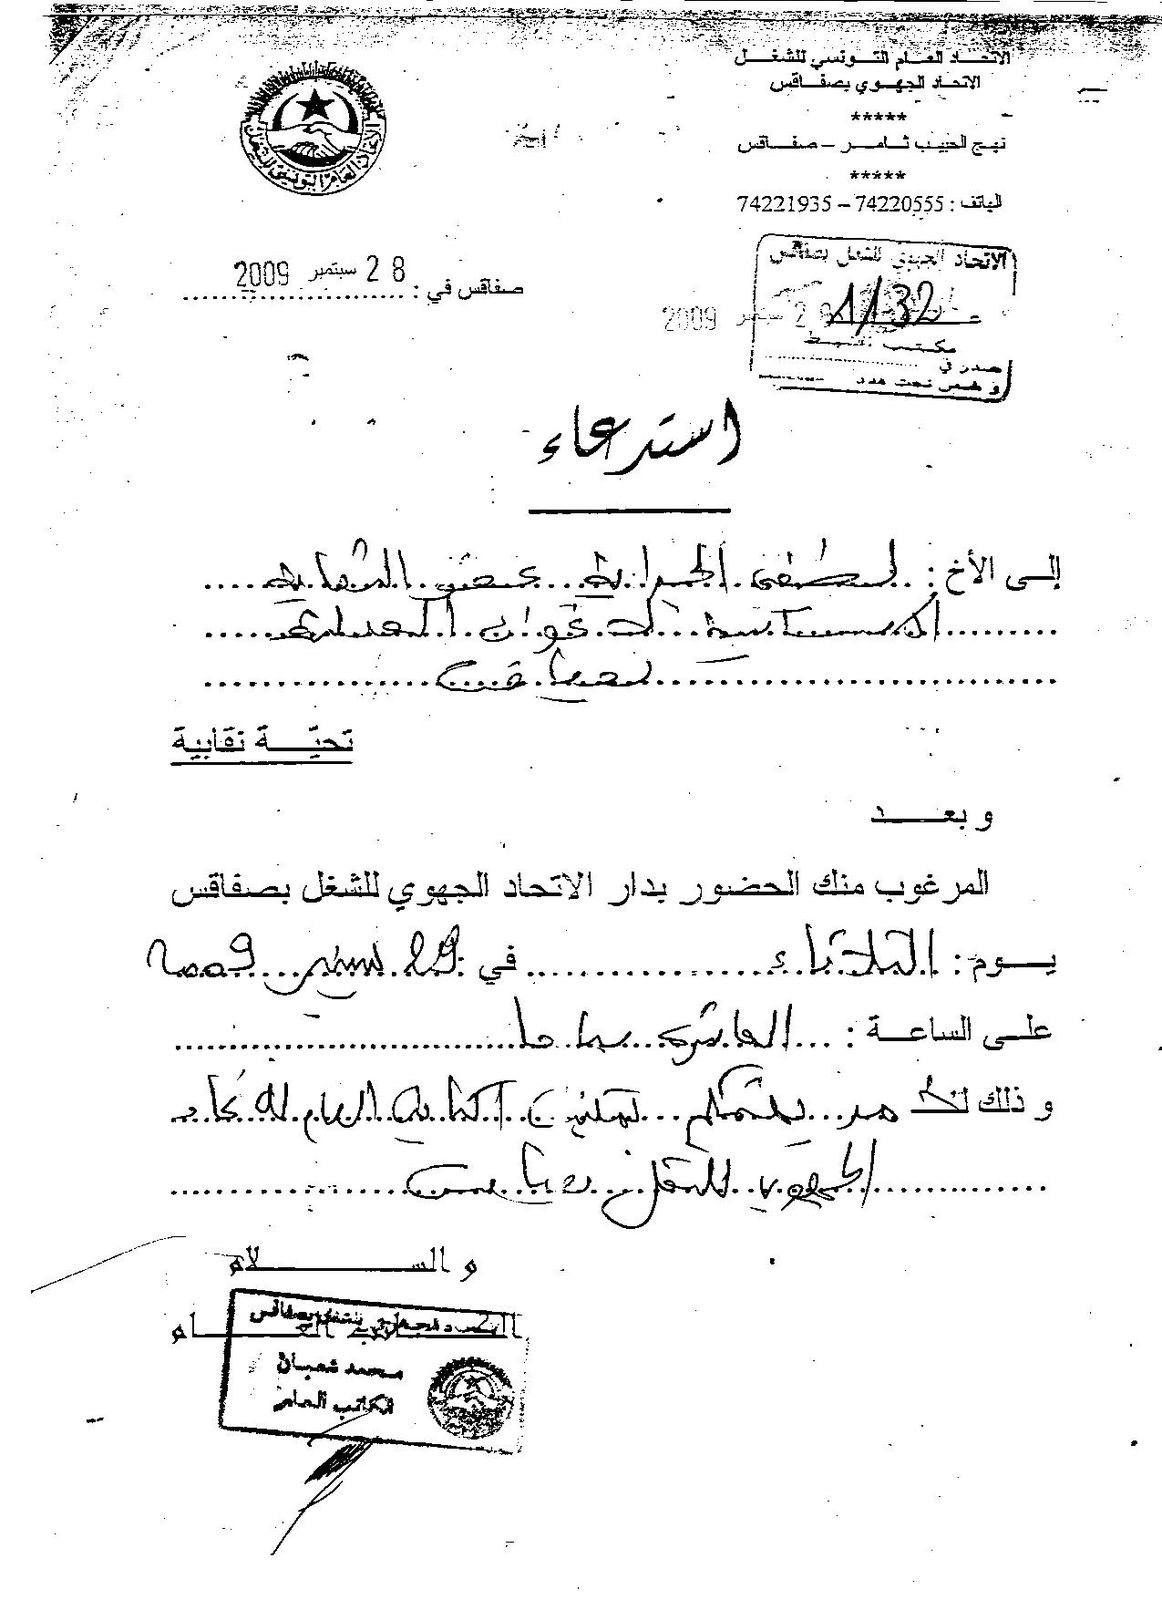 الاتحاد العام التونسي للشغل
الاتحاد الجهوي بصفاقس
*****
نهج الحبيب ثامر – صفاقس
*****
الهاتف : 74220555 – 74221935
الاتحاد العام التونسي للشغل
صفاقس في : 28 سبتمبر 2009
الاتحاد الجهوي للشغل بصفاقس
1/32
28 سبتمبر 2009
مكتب الضبط
صدر في
و ضمن تحت عدد
استدعاء
إلى الأخ : لطفي عضو النقابة
الأساسية
بصفاقس
تحيّة نقابية
و بعد
المرغوب منك الحضور بدار الاتحاد الجهوي للشغل بصفاقس
يوم : الثلاثاء في 29 سبتمبر 2009
على الساعة : العاشرة صباحا
و ذلك الكاتب العام للاتحاد
الجهوي للشغل بصفاقس
و السلام
الكاتب العام
الاتحاد الجهوي للشغل بصفاقس
محمد شعبان
الكاتب العام